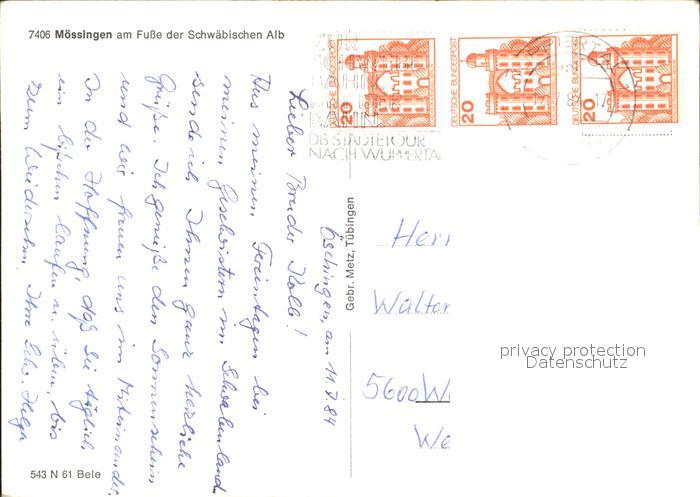 7406 Mössingen am Fuße der Schwäbischen Alb
Öschingen, am 11.7.84
Lieber Bruder Kolb!
Aus meinen Ferientagen bei
meinen Geschwistern im Schwabenland
sende ich Ihnen ganz herzliche
Grüße. Ich genieße den Sonnenschein
und wir freuen uns im Miteinander.
In der Hoffnung, daß Sie täglich
ein bißchen laufen u. üben, bis
zum Wiedersehn, Ihre Schw. Helga
543 N 61 Bele
Gebr. Metz, Tübingen
DEUTSCHE BUNDESPOST
20
DEUTSCHE BUNDESPOST
20
DEUTSCHE BUNDESPOST
20
DB STÄDTETOUR
NACH WUPPERTA
Herr
Walter
5600 W
privacy protection
Datenschutz